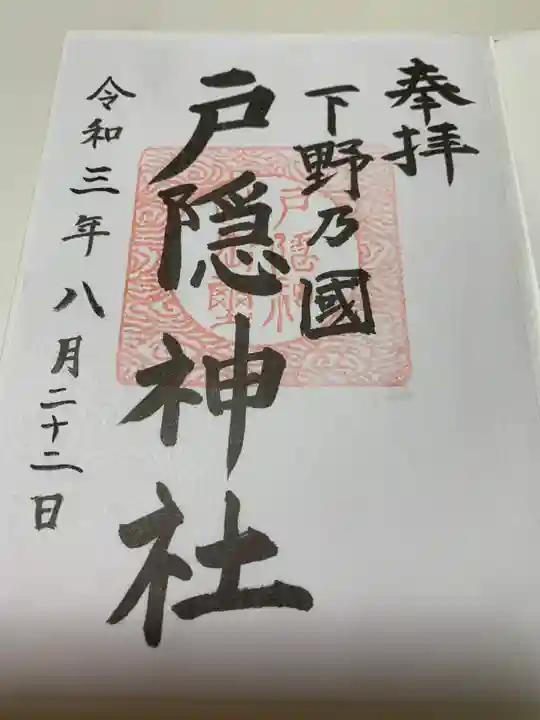 奉拝
下野乃國
戸隠神社
令和三年八月二十二日